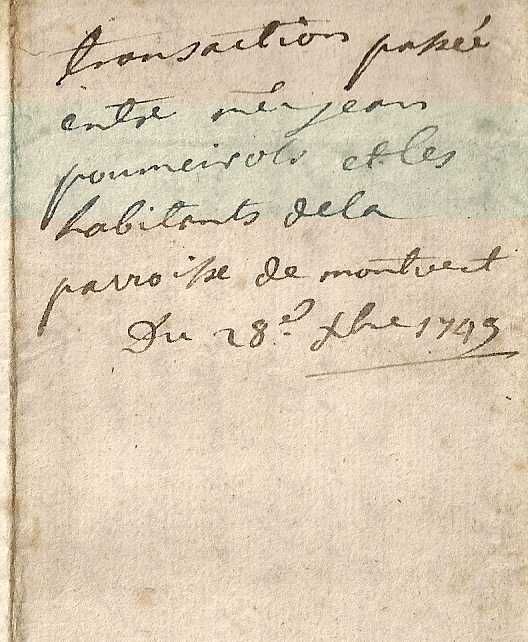 transaction passée
entre mer jean
poumeirols et les
habitants de la
parroisse de montvert
Du 28e Xbre 1749